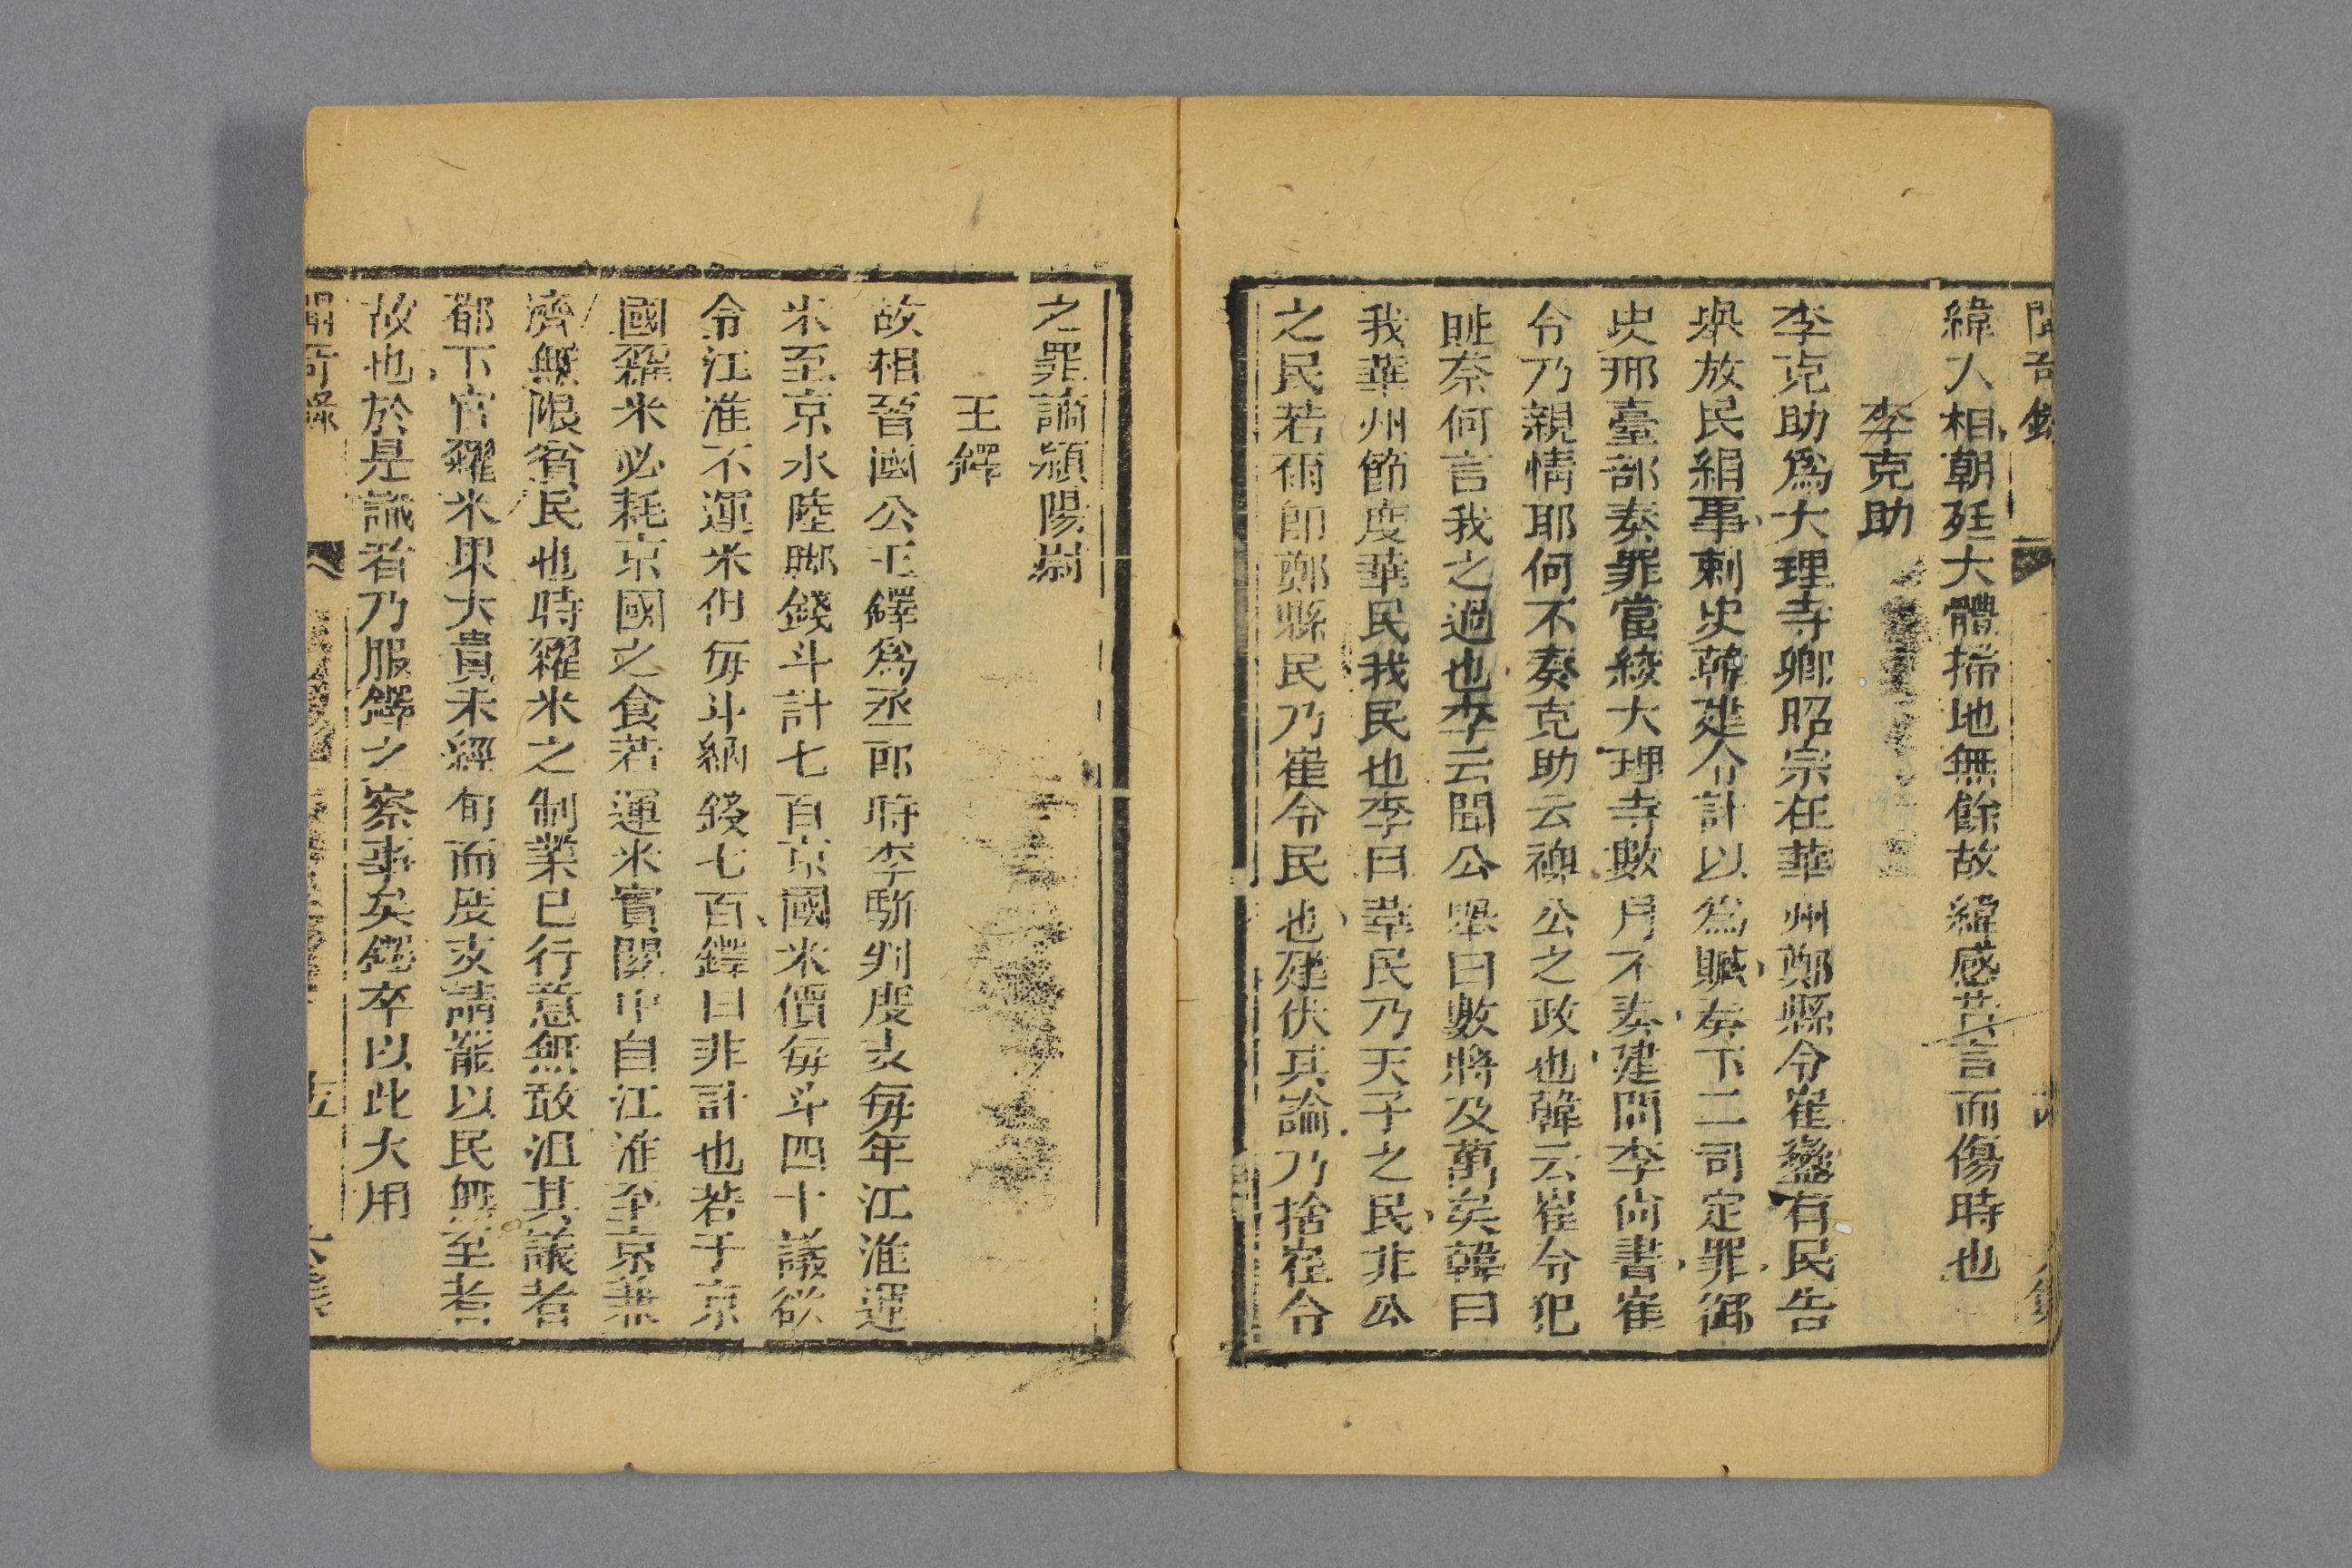 聞奇錄
緯人相朝廷大體掃地無餘故緯感昔言而傷時也
李克助
李克助爲大理寺卿昭宗在華州鄭縣令崔鑾有民告
舉放民絹事刺史韓建令計以爲贓奏下二司定罪御
史刑臺部奏罪當絞大理寺數月不奏建問李尚書崔
令乃親情耶何不奏克助云裨公之政也韓云崔令犯
贓奈何言我之過也李云聞公舉曰數將及萬矣韓曰
我華州節度華民我民也李曰華民乃天子之民非公
之民若爾卽鄭縣民乃崔令民也建伏其論乃捨崔令
之罪謫潁陽尉
王鐸
故相晉國公王鐸爲丞郎時李駢判度支每年江淮運
米至京水陸脚錢斗計七百京國米價每斗四十議欲
令江淮不運米但每斗納錢七百鐸曰非計也若于京
國糴米必耗京國之食若運米實關中自江淮至京兼
濟無限貧民也時糴米之制業已行意無敢沮其議者
都下官糴米果大貴未經旬而度支請罷以民無至者
故也於是識者乃服鐸之察事矣鐸卒以此大用
聞奇錄
五